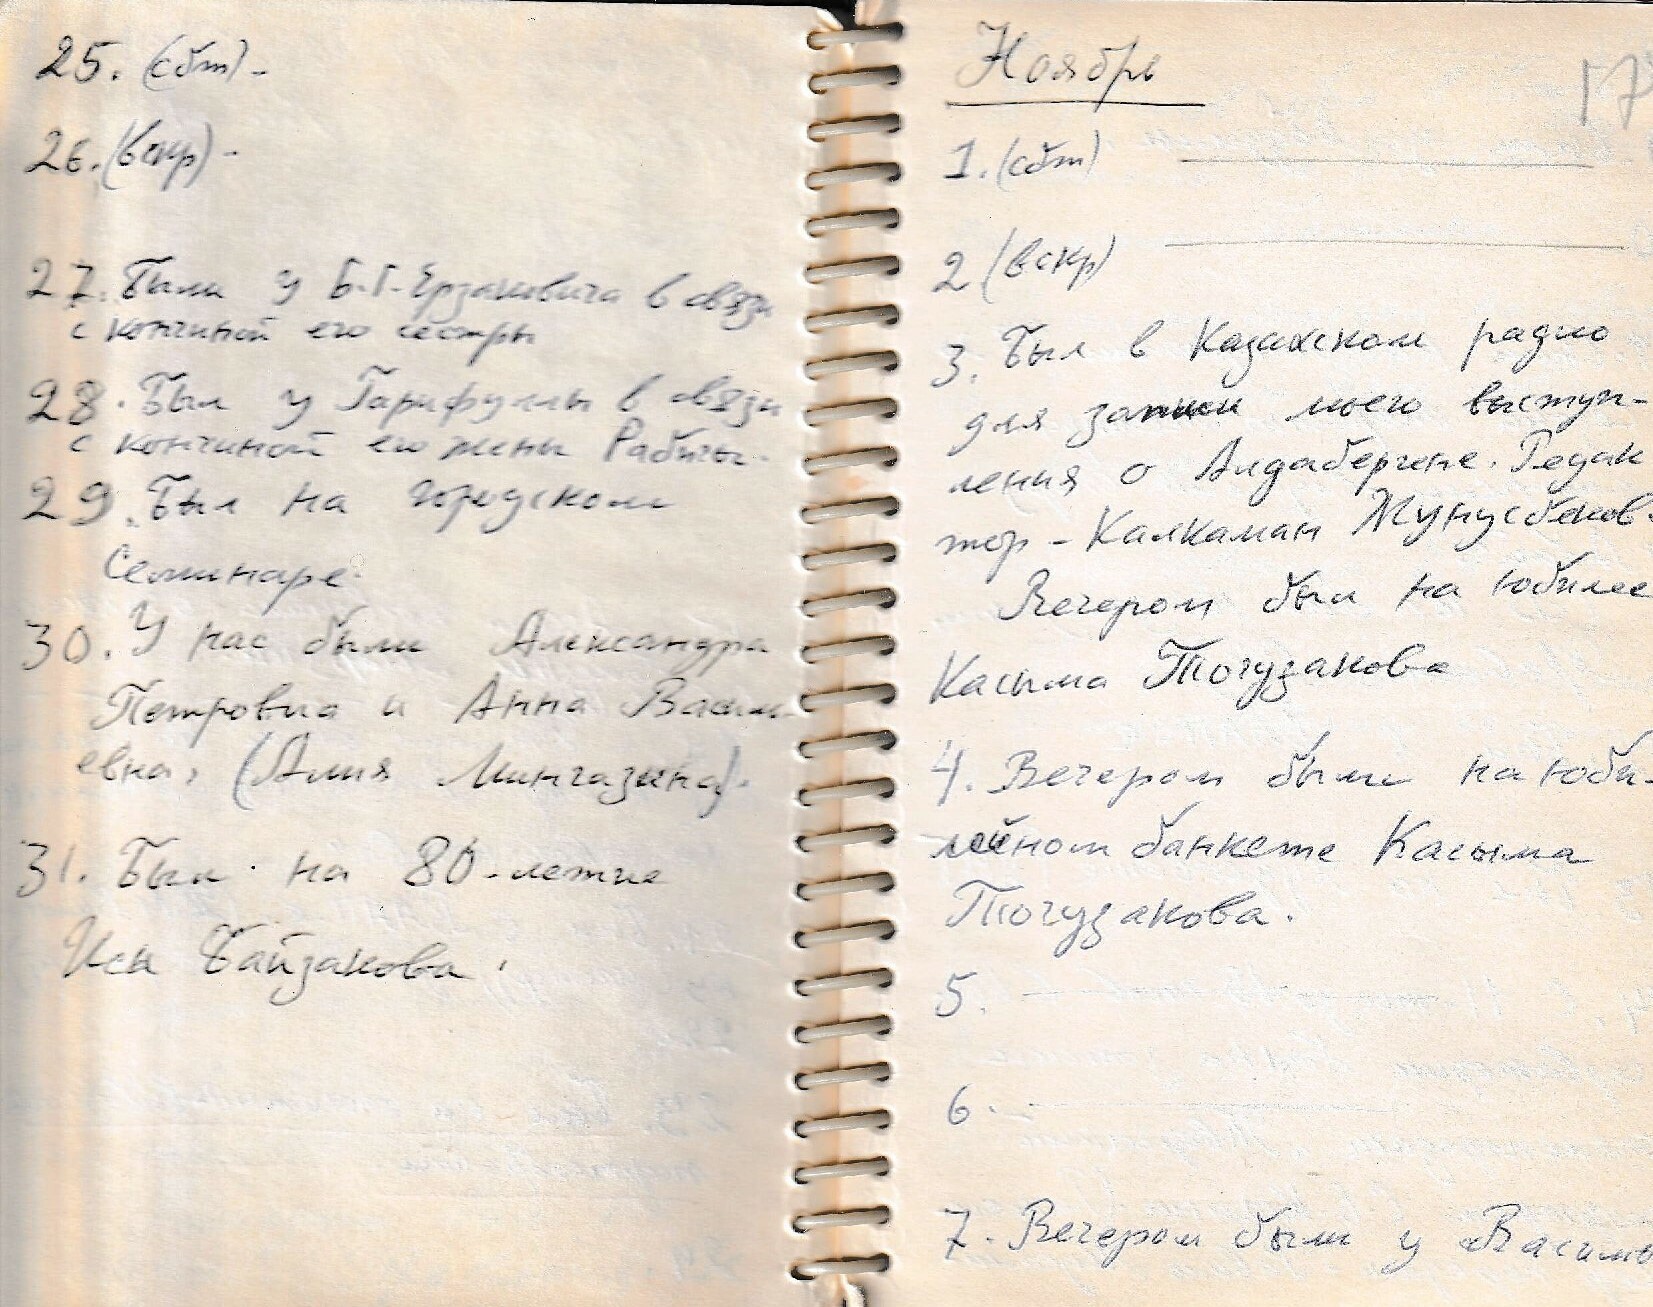 25. (сбт) -
26. (вскр) -
27. Были у Б.Г. Ерзаковича в связи
с кончиной его сестры
28. Был у Гарифуллы в связи
с кончиной его жены Рабиги.
29. Был на городском
семинаре.
30. У нас были Александра
Петровна и Анна Василь-
евна, (Алия Мингазина).
31. Был на 80-летие
Исы Байзакова.
Ноябрь
17
1. (сбт)
2 (вскр)
3. Был в Казахском радио
для записи моего выступ-
ления о Алдабергене. Редак
тор - Калкаман Жунусбеков.
Вечером был на юбилее
Касыма Тогузакова
4. Вечером были на юби-
лейном банкете Касыма
Тогузакова.
5.
6.
7. Вечером были у